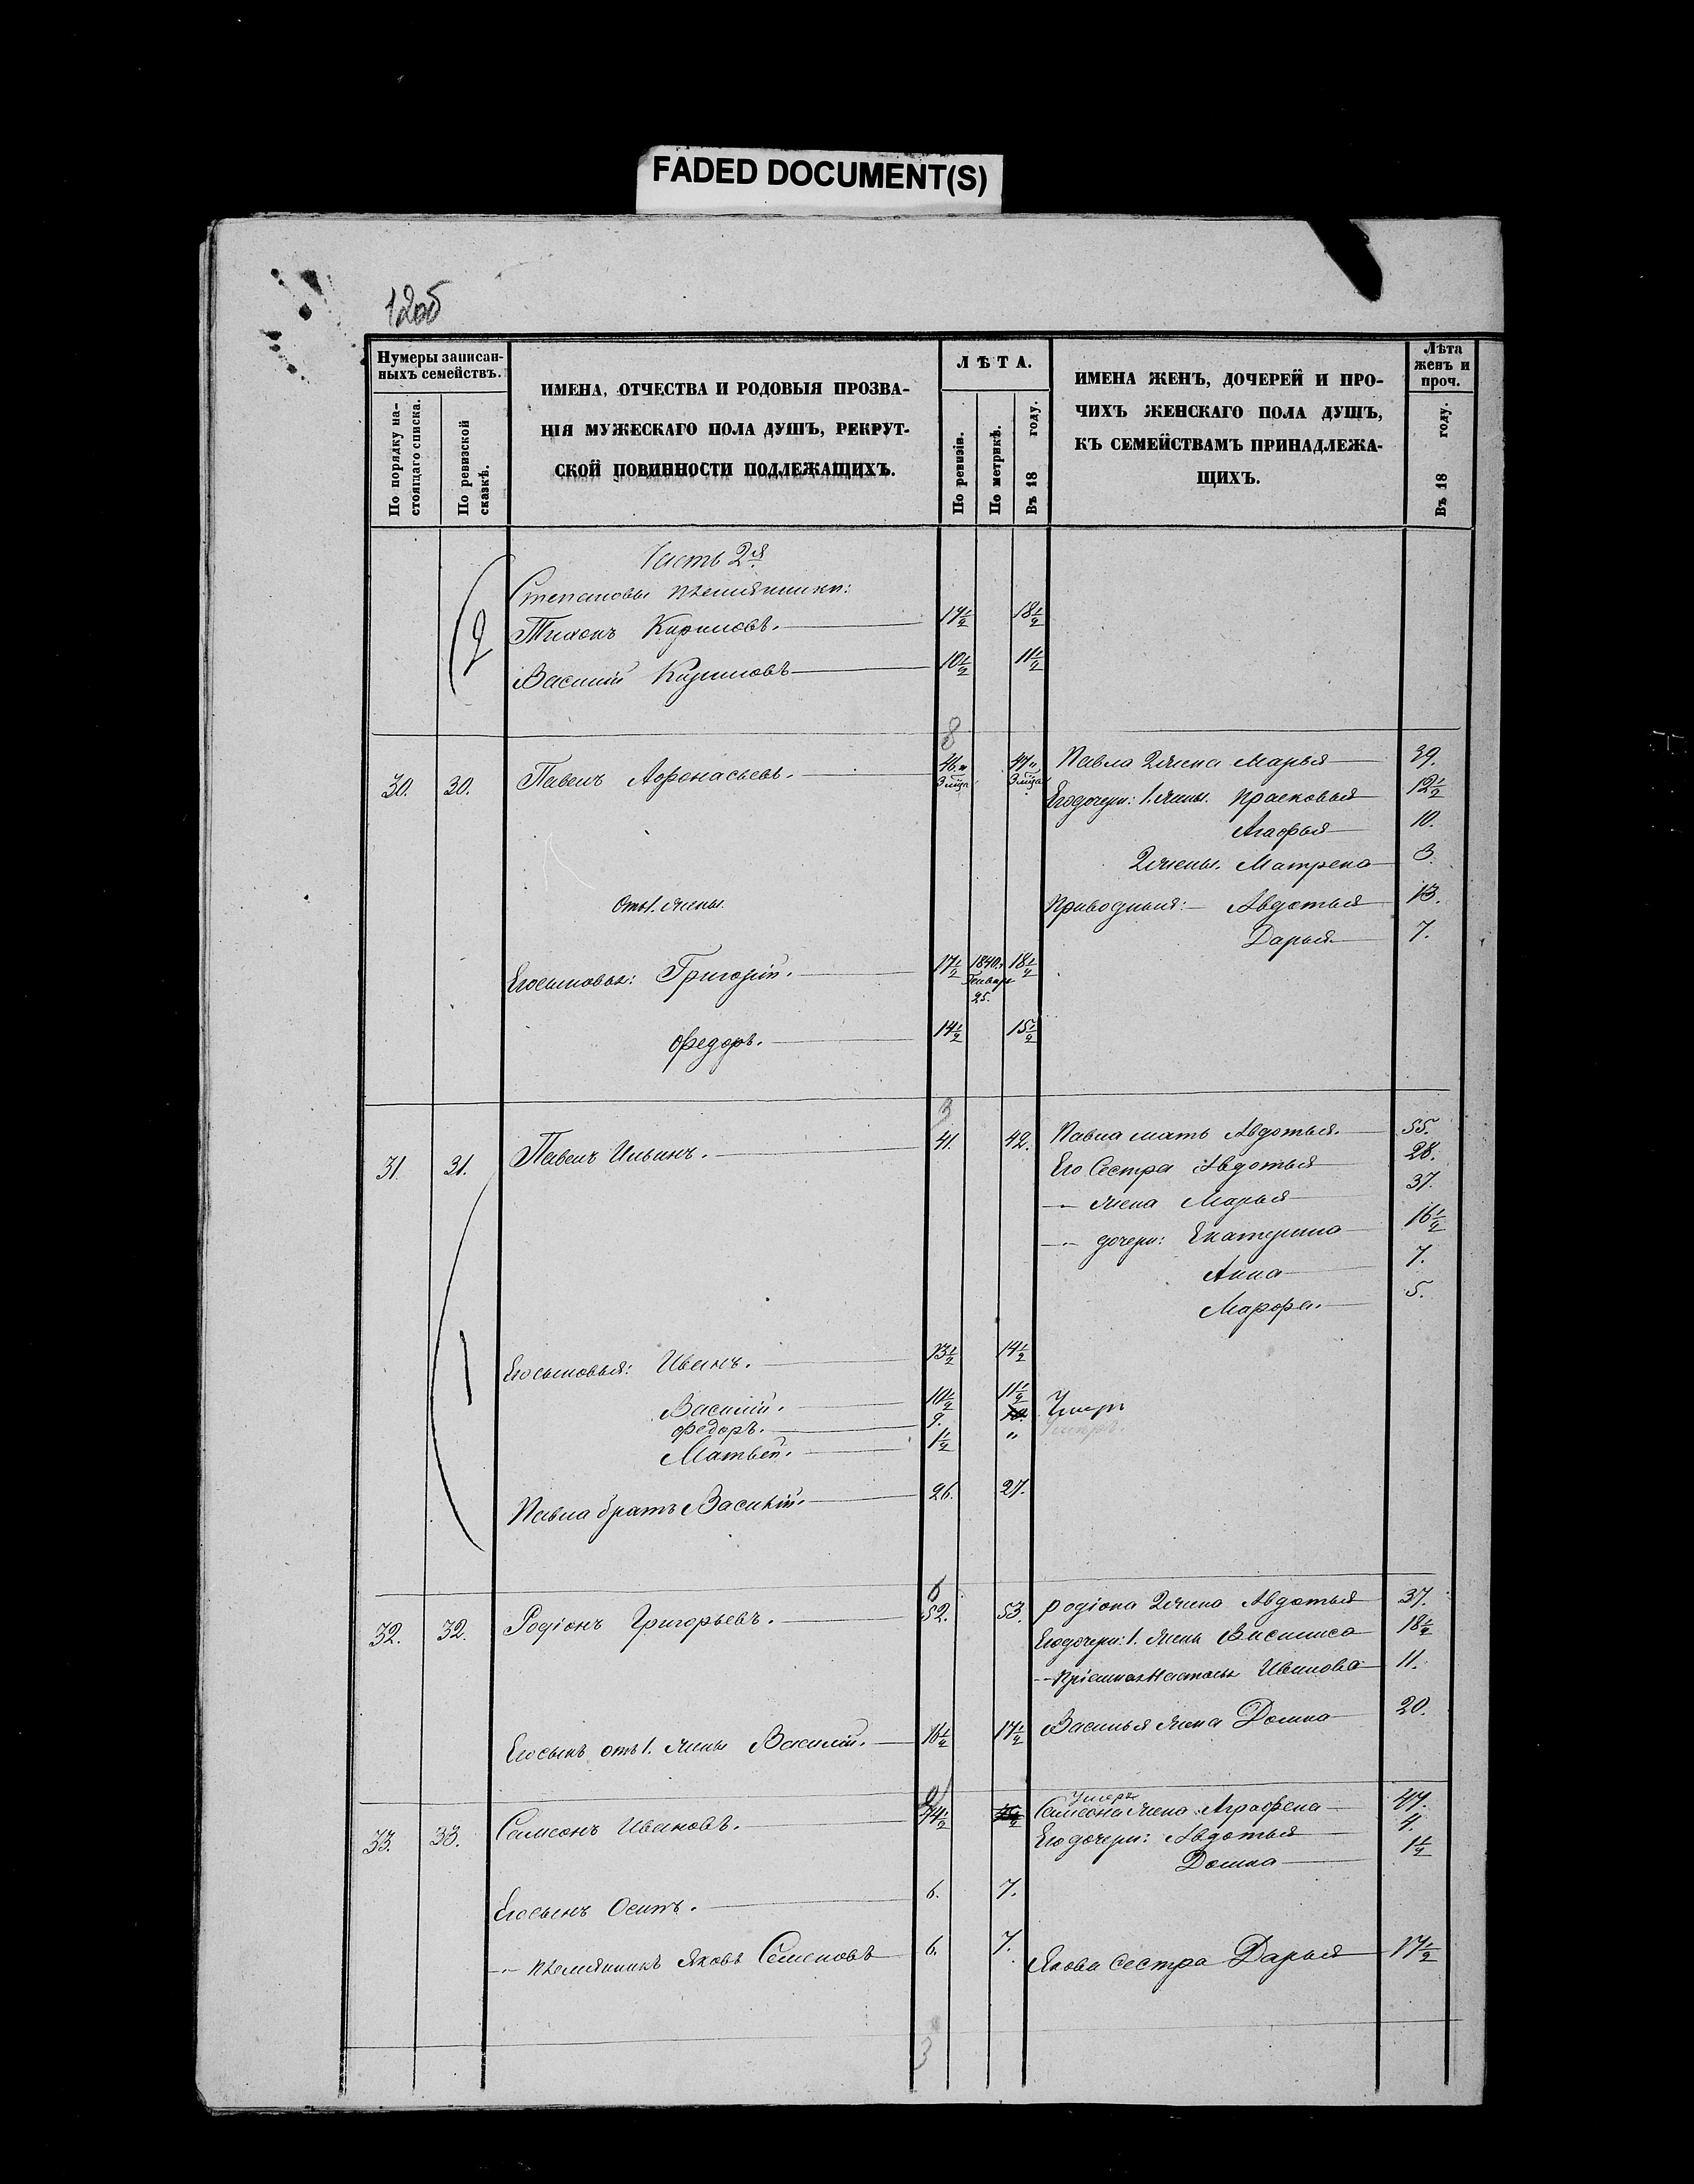 FADED DOCUMENT(S)
12об
Нумеры записан-
ныхъ семействъ.
По порядку на-
стоящаго списка.
По ревизской
сказкѣ.
ИМЕНА, ОТЧЕСТВА И РОДОВЫЯ ПРОЗВА-
НІЯ МУЖЕСКАГО ПОЛА ДУШЪ, РЕКРУТ-
СКОЙ ПОВИННОСТИ ПОДЛЕЖАЩИХЪ.
ЛѢТА.
По ревизіи.
По метрикѣ.
Въ 18 году.
ИМЕНА ЖЕНЪ, ДОЧЕРЕЙ И ПРО-
ЧИХЪ ЖЕНСКАГО ПОЛА ДУШЪ,
КЪ СЕМЕЙСТВАМЪ ПРИНАДЛЕЖА-
ЩИХЪ.
Лѣта
женъ и
проч.
Въ 18 году.
Часть 2я
Степановы племянники:
2 Тихонъ Кириловъ. 17½ 18½
Василій Кириловъ 10½ 11½
8
30. 30. Павелъ Афонасьевъ. 46„ 3 м̃ца 47„ 3 м̃ца Павла 2 жена Марья 39.
Его дочери: 1. жены. Прасковья 12½
Агафья 10.
2 жены. Матрена 3.
Отъ 1. жены. Приводныя: Авдотья 13.
Дарья 7.
Его сыновья: Григорій. 17½ 1840. Генваря 25. 18½
Федоръ. 14½ 15½
3
31. 31. Павелъ Ильинъ. 41. 42. Павла мать Авдотья. 55.
Его Сестра Авдотья 28.
-„- жена Марья 37.
-„- дочери: Екатерина 16½
Анна 7.
Марфа. 5.
1 Его сыновья: Иванъ. 13½ 14½
Василій. 10½ 11½
Федоръ. 9. 10. Умеръ
Матвей. 1½ „ Умеръ.
Павла братъ Василій. 26. 27.
6
32. 32. Родіонъ Григорьевъ. 52. 53. Родіона 2 жена Авдотья 37.
Его дочери: 1. жены Василиса 18½
-„- Пріемная Настасья Иванова 11.
Его сынъ отъ 1. жены Василій. 16½ 17½ Василья жена Домна 20.
33. 33. Самсонъ Ивановъ. 44½ Умеръ Самсона жена Аграфена 47.
Его дочери: Авдотья 4.
Домна 1½
Его сынъ Осипъ. 6. 7.
-„- племянникъ Яковъ Семеновъ 6. 7. Якова сестра Дарья 17½
3